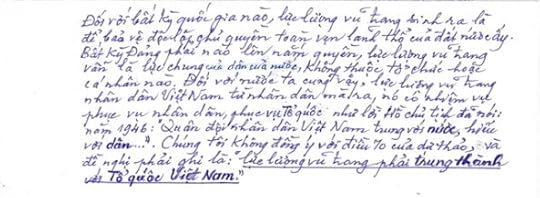 Đối với bất kỳ quốc gia nào, lực lượng vũ trang sinh ra là
để bảo vệ độc lập chủ quyền toàn vẹn lãnh thổ của đất nước ấy.
Bất kỳ Đảng phái nào lên nắm quyền, lực lượng vũ trang
vẫn là lực chung của dân của nước, không thuộc tổ chức hoặc
cá nhân nào. Đối với nước ta cũng vậy, lực lượng vũ trang
nhân dân Việt Nam từ nhân dân mà ra, nó có nhiệm vụ
phục vụ nhân dân, phục vụ Tổ quốc như lời Hồ chủ tịch đã nói:
năm 1946: Quân đội nhân dân Việt Nam trung với nước, hiếu
với dân...". Chúng tôi không đồng ý với điều 70 của dự thảo, và
đề nghị phải ghi là: "lực lượng vũ trang phải trung thành
với Tổ quốc Việt Nam."